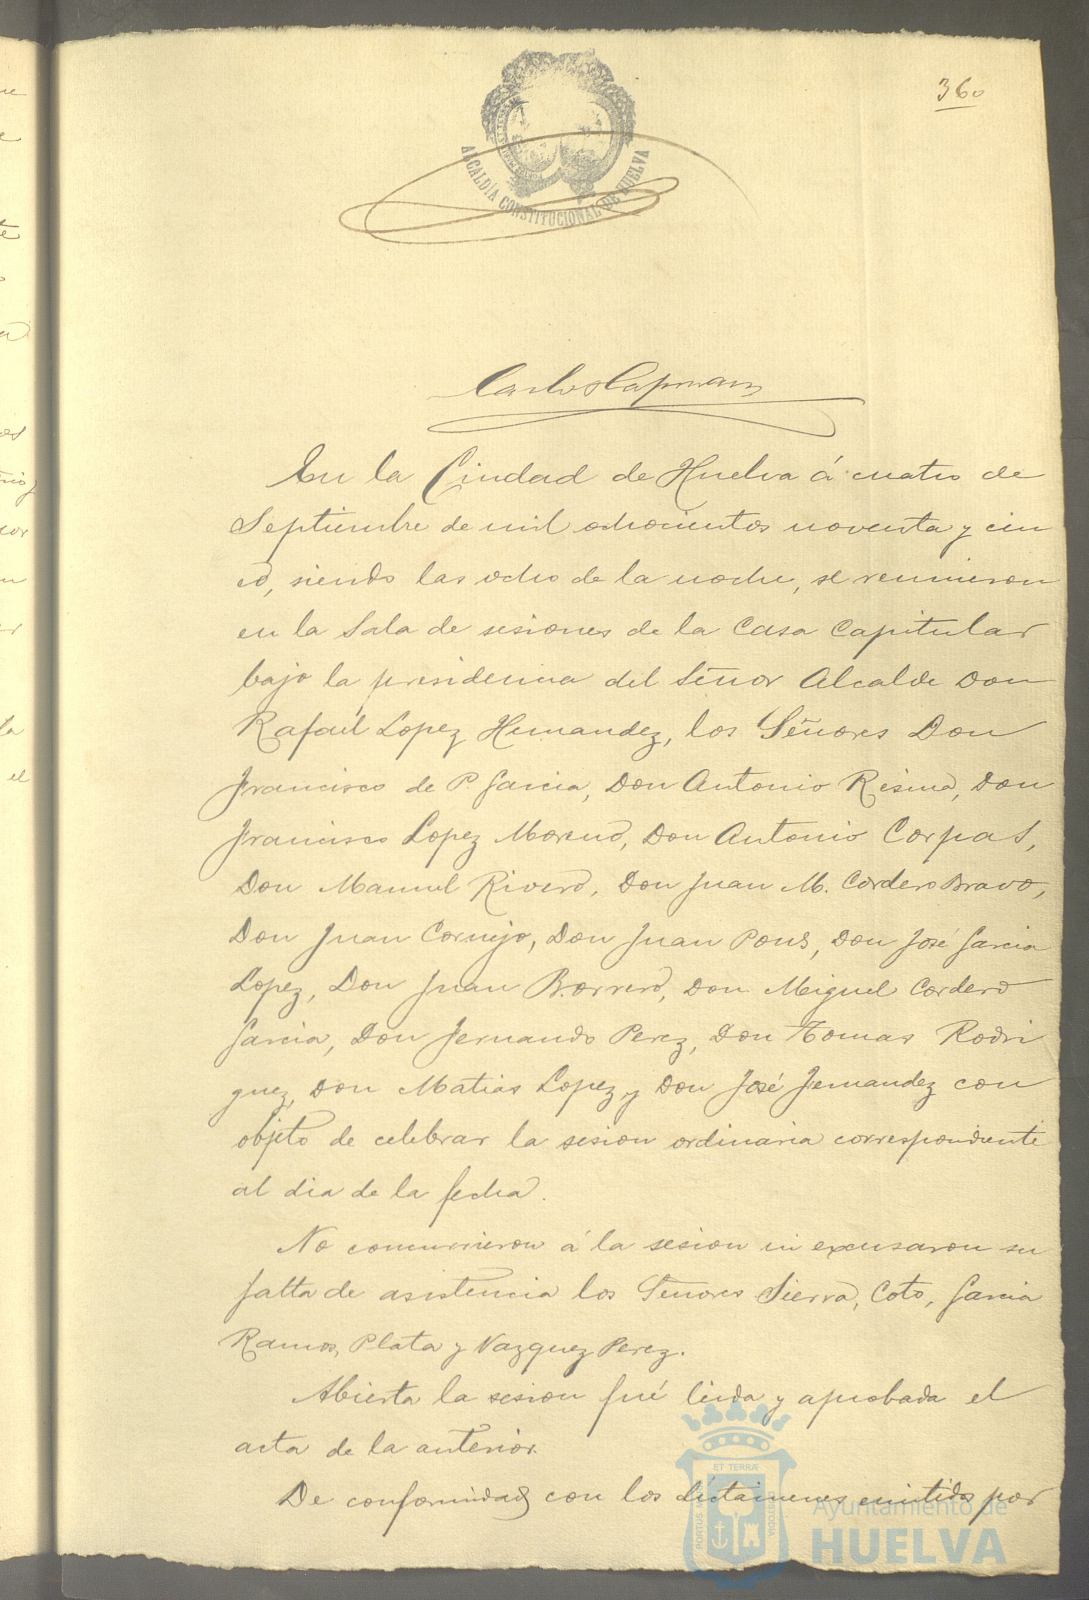 360
ALCALDÍA CONSTITUCIONAL DE HUELVA
Carlos
En la Ciudad de Huelva á cuatro de
Septiembre de mil ochocientos noventa y cin
co, siendo las ocho de la noche, se reunieron
en la Sala de sesiones de la Casa Capitular
bajo la presidencia del Señor Alcalde Don
Rafael Lopez Hernandez, los Señores Don
Francisco de P. Garcia, Don Antonio Resina, Don
Francisco Lopez Moreno, Don Antonio Corpas,
Don Manuel Rivero, Don Juan M. Cordero Bravo,
Don Juan Cornejo, Don Juan Pons, Don José Garcia
Lopez, Don Juan Borrero, Don Miguel Cordero
Garcia, Don Fernando Perez, Don Tomas Rodri
guez, Don Matias Lopez y Don José Fernandez con
objeto de celebrar la sesion ordinaria correspondiente
al dia de la fecha.
No concurrieron á la sesion ni excusaron su
falta de asistencia los Señores Sierra, Coto, Garcia
Ramos, Plata y Vazquez Perez.
Abierta la sesion fué leida y aprobada el
acta de la anterior.
De conformidad con los dictámenes emitidos por
ET TERRÆ
PORTUS MARIS
CUSTODIA
Ayuntamiento de
HUELVA